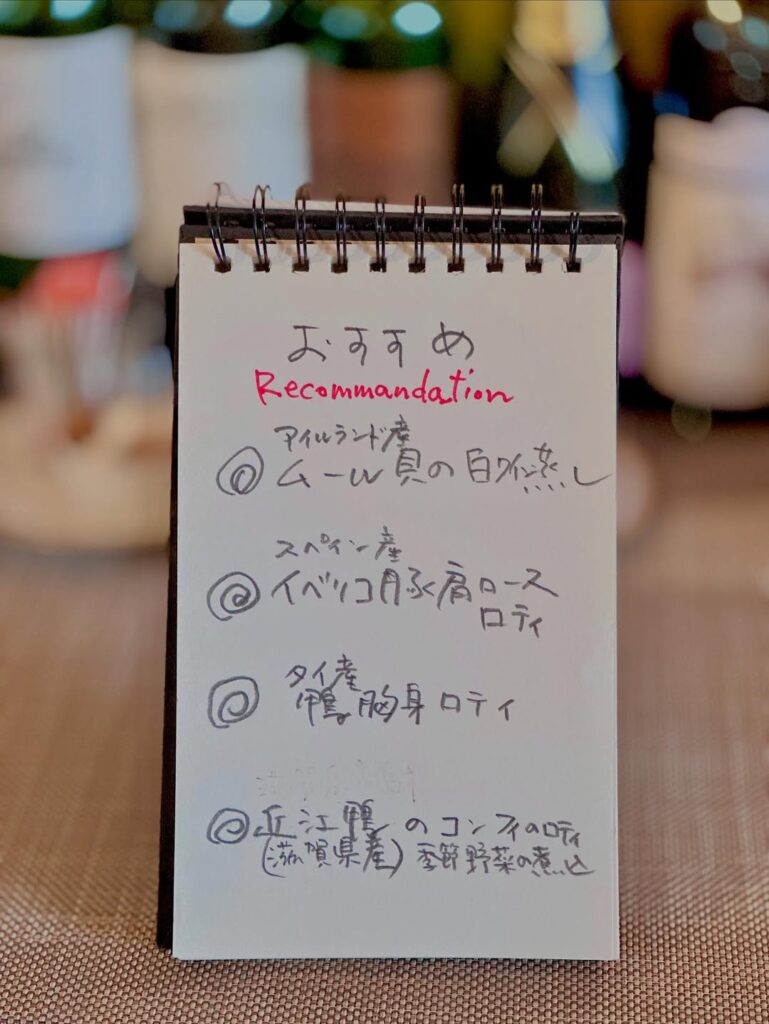 おすすめ
Recommandation
アイルランド産
◎ ムール貝の白ワイン蒸し
スペイン産
◎ イベリコ豚肩ロース
ロティ
タイ産
◎ 鴨胸身ロティ
◎ 近江鴨のコンフィのロティ
(滋賀県産) 季節野菜の煮込